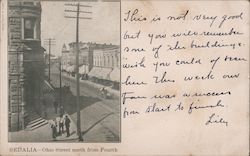 This is not very good
but you will remember
some of the buildings.
wish you could of been
here this week our
Fair was a success
from start to finish.
Lily
SEDALIA - Ohio Street north from Fourth